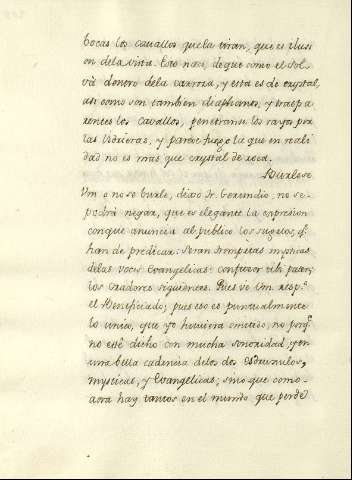 bocas los cavallos que la tiran, que es ilusi
on de la vista. Esto nace, de que como el Sol
và dentro de la carroza, y esta es de crystal,
asi como son tambien diaphanos, y traspa
rentes los Cavallos, penetranse los rayos por
las vidrieras, y parece fuego lo que en reali
dad no es mas que crystal de roca.
Burlese
Vm o no se burle, dixo Fr. Gerundio, no se
podrà negar, que es elegante la expresion
con que anuncia al publico los sugetos, q.
han de predicar: Seran trompetas mysticas
de las voces Evangelicas:
los Oradores siguientes. Pues ve Vm resp.
el Beneficiado; pues eso es puntualmente
lo unico, que yo huviera omitido, no porq.
no esté dicho con mucha sonoridad, y en
una bella cadencia de los dos Esdruxulos,
mysticas, y Evangelicas; sino que como
aora hay tantos en el mundo que pierde